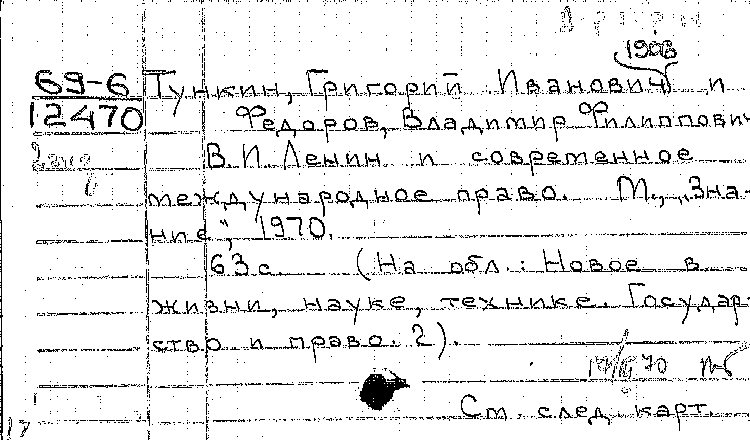 1906
69-6 Тункин, Григорий Иванович и
12470 Федоров, Владимир Филиппович
В.И. Ленин и современное
международное право. М., „Зна-
ние", 1970.
63 с. (На обл.: Новое в
жизни, науке, технике. Государ-
ство и право. 2).
70
См. след. карт.
17